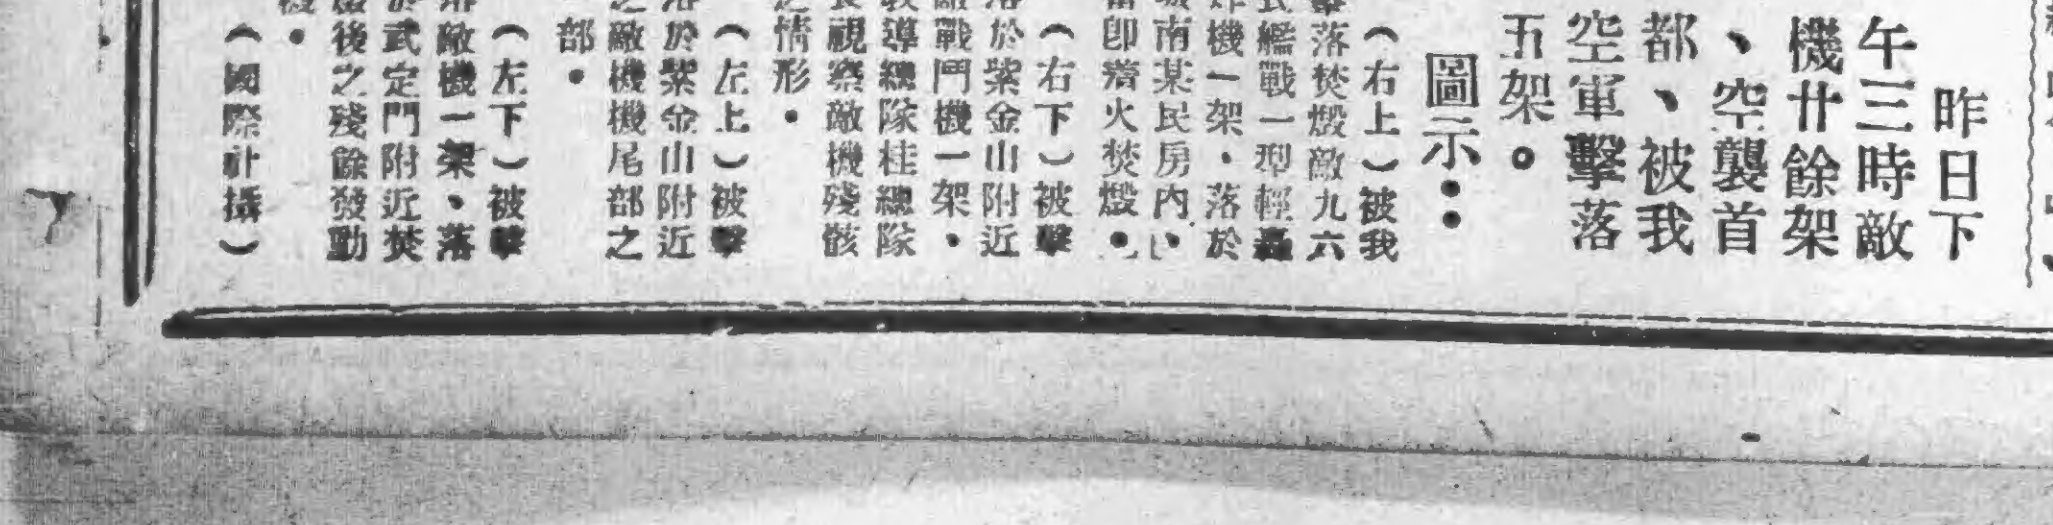 昨日下
午三時敵
機廿餘架
、空襲首
都、被我
空軍擊落
五架。
圖示：
（右上）被我
擊落焚燬敵九六
式艦戰一型輕轟
炸機一架・落於
城南某民房內，
當即着火焚燬。
（右下）被擊
落於紫金山附近
敵戰鬥機一架・
教導總隊桂總隊
長視察敵機殘骸
之情形・
（左上）被擊
落於紫金山附近
之敵機機尾部之
部・
（左下）被擊
落敵機一架、落
於武定門附近焚
燬後之殘餘發動
機・
（國際社攝）